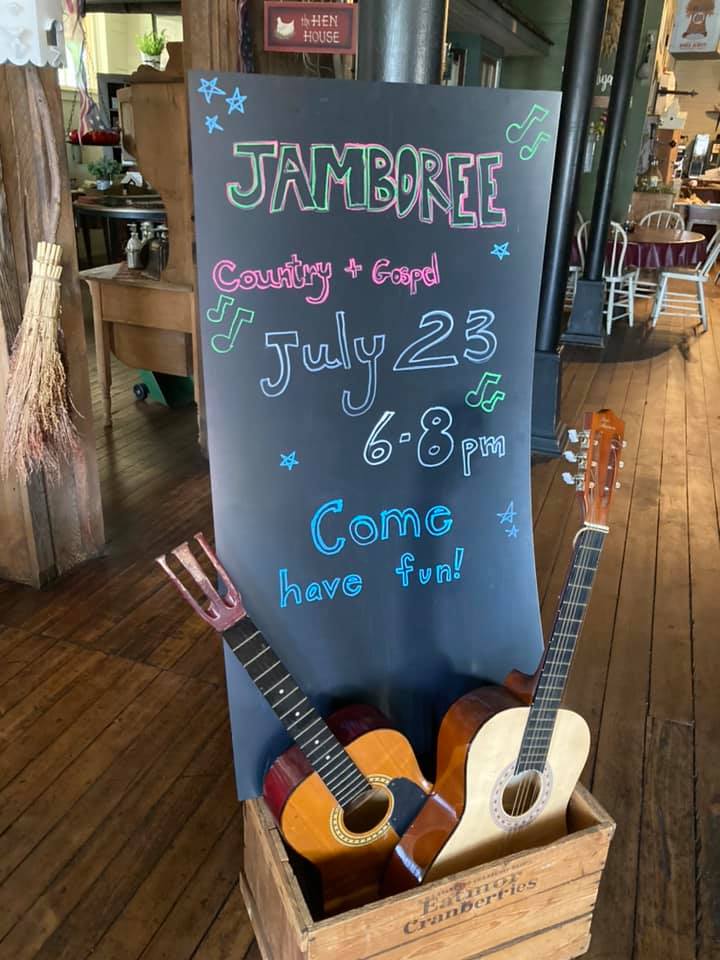 the HEN
HOUSE
JAMBOREE
Country + Gospel
July 23
6-8pm
Come
have fun!
Eatmor
Cranberries